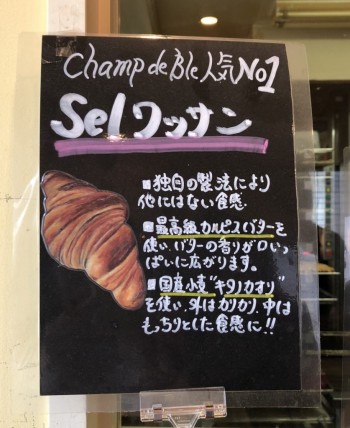 Champ de Ble 人気No1
Selワッサン
■独自の製法により
他にはない食感.
■最高級カルピスバターを
使い、バターの香りが口いっ
ぱいに広がります。
■国産小麦"キタノカオリ"
を使い、外はカリカリ、中は
もっちりとした食感に!!